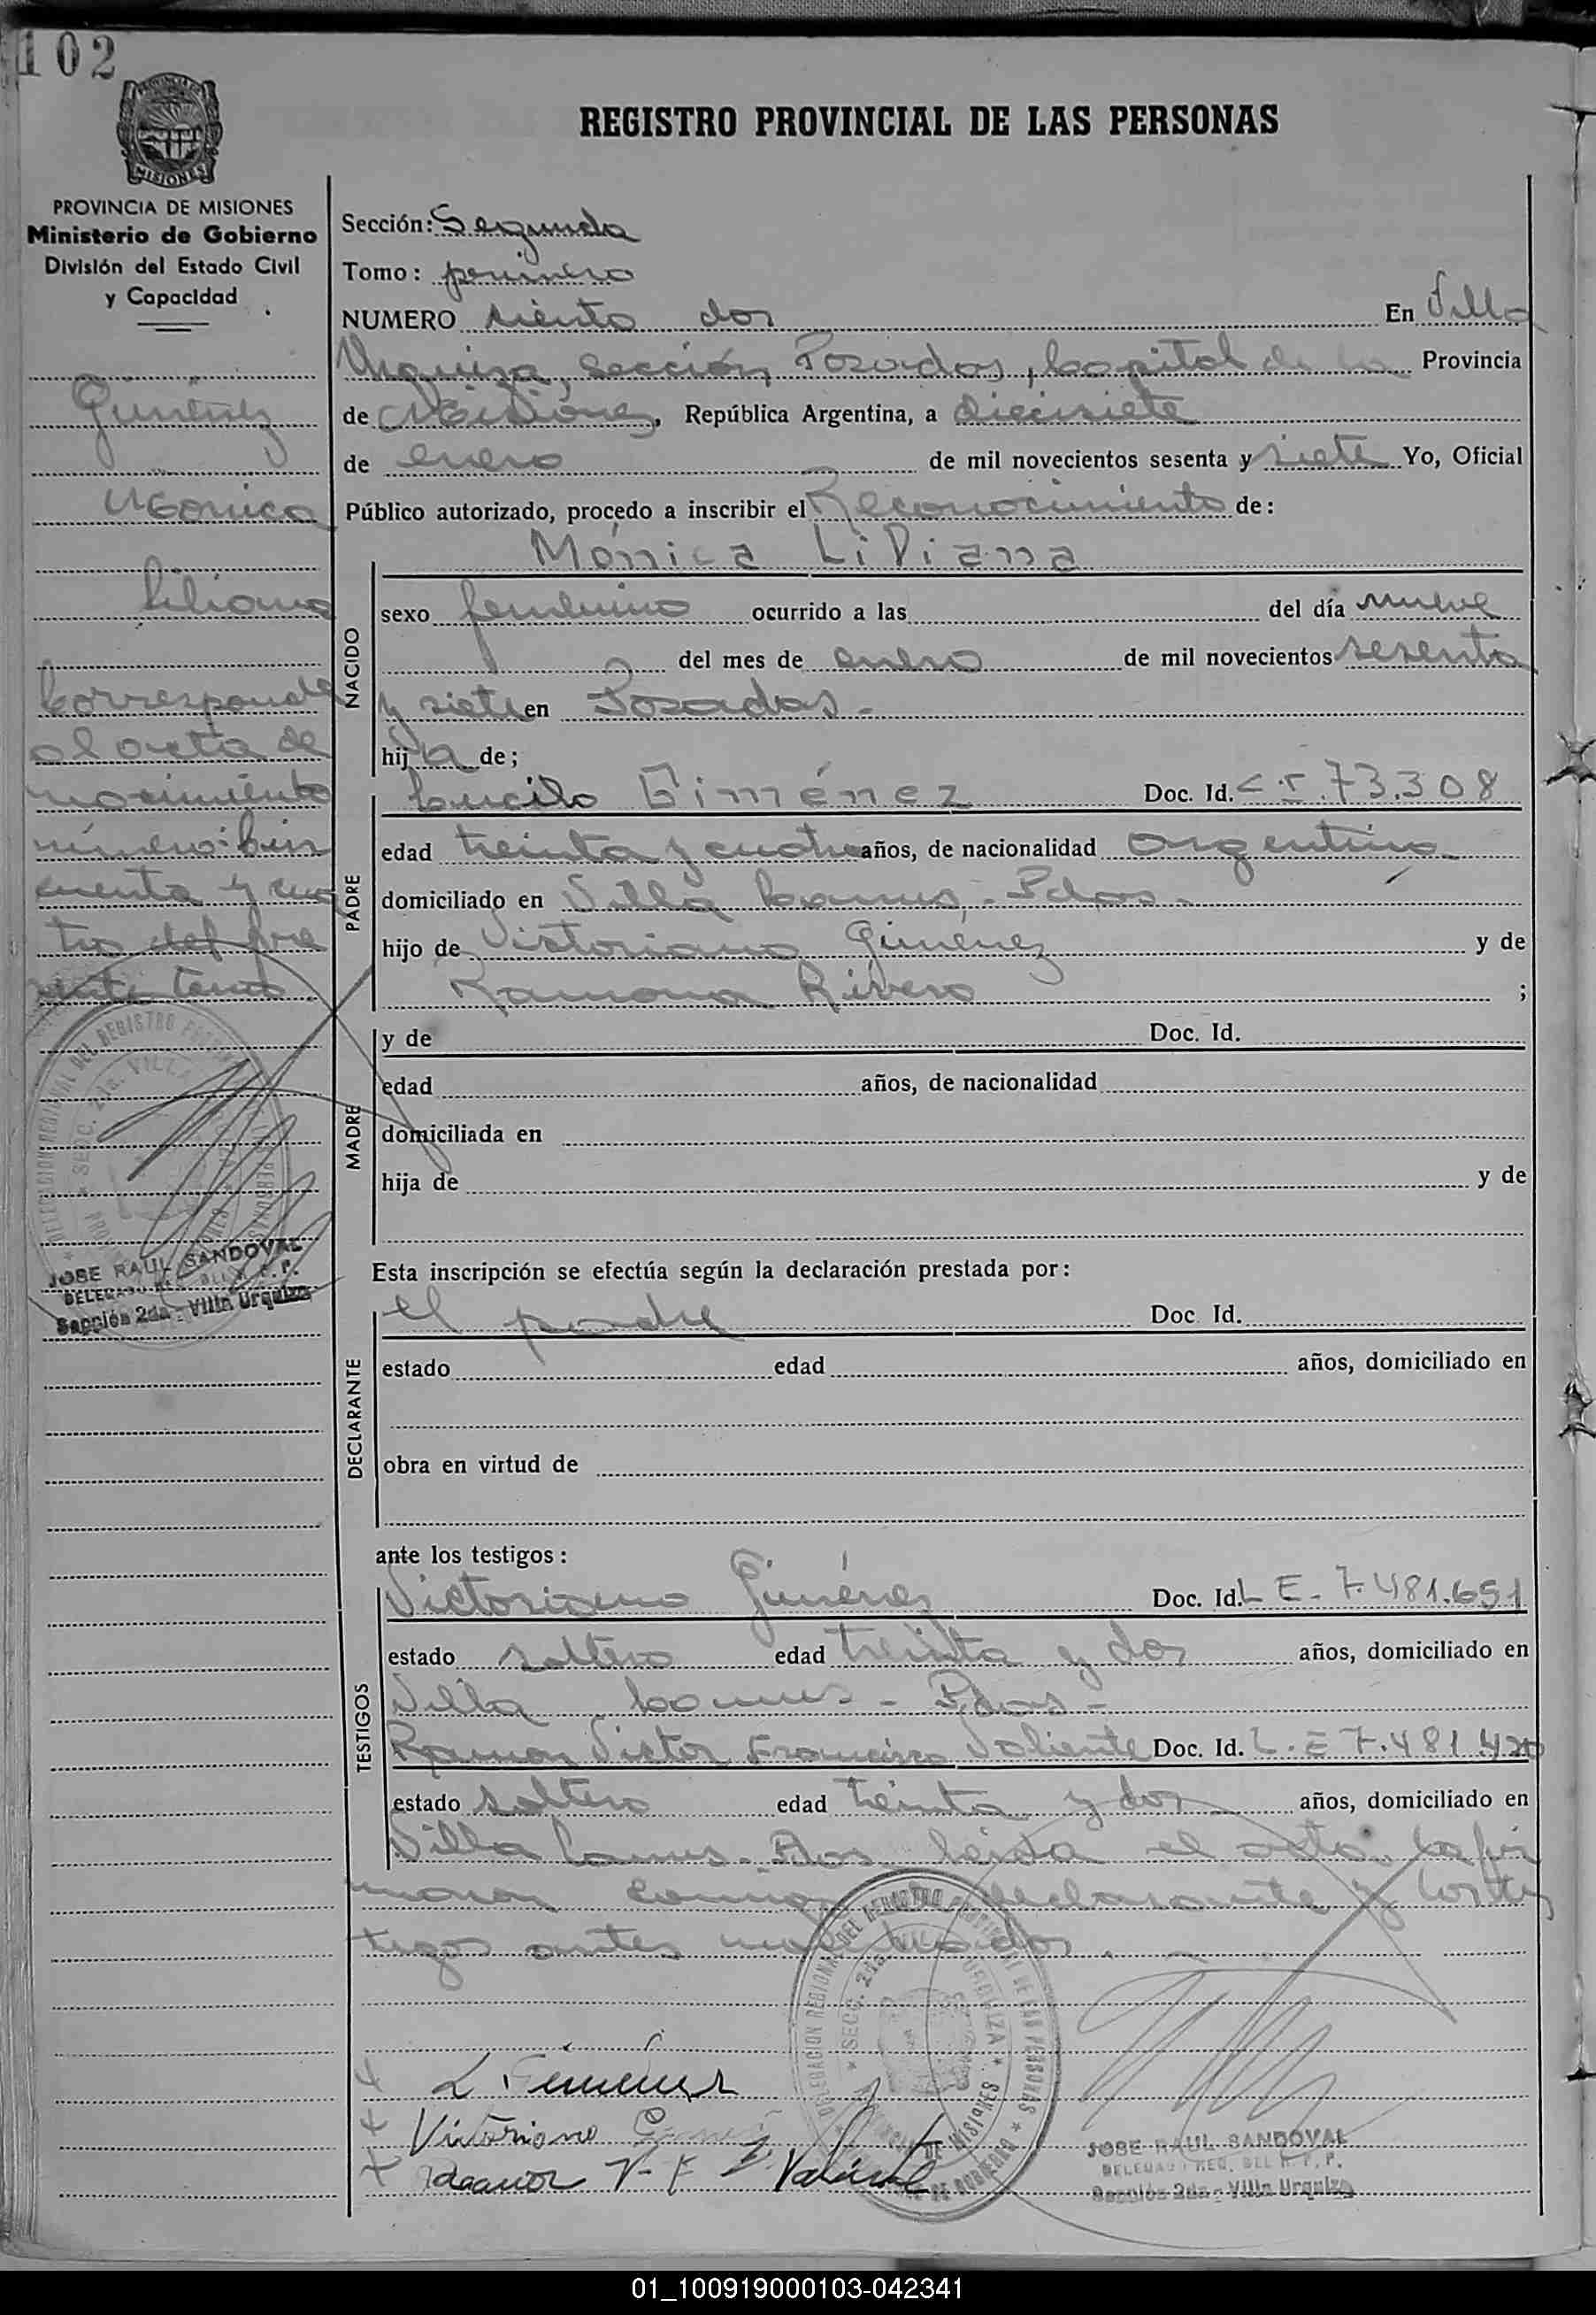 102
REGISTRO PROVINCIAL DE LAS PERSONAS
PROVINCIA DE MISIONES
MISIONES
PROVINCIA DE MISIONES
Ministerio de Gobierno
División del Estado Civil
y Capacidad
Giménez
Mónica
Liliana
Corresponde
al acta de
nacimiento
número: Cin
cuenta y cua
tro del pre
sente tomo
JOSE RAUL SANDOVAL
Sección 2da - Villa Urquiza
Sección: Segunda
Tomo: primero
NUMERO siento dos En Villa
Urquiza, Sección Posadas, Capital de la Provincia
de Misiones, República Argentina, a diecisiete
de enero de mil novecientos sesenta y siete Yo, Oficial
Público autorizado, procedo a inscribir el Reconocimiento de:
Mónica Liliana
NACIDO
sexo femenino ocurrido a las del día nueve
del mes de enero de mil novecientos sesenta
y siete en Posadas.-
hija de;
PADRE
Lucilo Giménez Doc. Id. C.I. 73.308
edad treinta y cuatro años, de nacionalidad argentina
domiciliado en Villa Lanus.- Pdas.
hijo de Victoriano Giménez y de
Ramona Rivero ;
MADRE
y de Doc. Id.
edad años, de nacionalidad
domiciliada en
hija de y de
Esta inscripción se efectúa según la declaración prestada por:
DECLARANTE
el padre Doc. Id.
estado edad años, domiciliado en
obra en virtud de
ante los testigos:
TESTIGOS
Victoriano Giménez Doc. Id. L E - 7.481.651
estado soltero edad treinta y dos años, domiciliado en
Villa Lanus - Pdas -
Ramon Victor Francisco Valiente Doc. Id. L. E 7.481.420
estado soltero edad treinta y dos años, domiciliado en
Villa Lanus. Pdas leida el acta, la fir
maron conmigo declarante y los tes
tigos antes nombrados.-
L. Giménez
Victoriano Gimenez
Ramon V- F Valiente
JOSE RAUL SANDOVAL
Sección 2da - Villa Urquiza
01_100919000103-042341